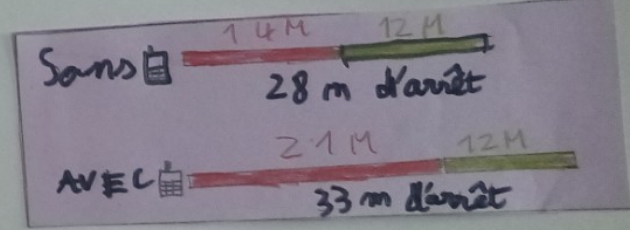 14M 12M
Sans
28 m d'arrêt
21M 12M
AVEC
33 m d'arrêt